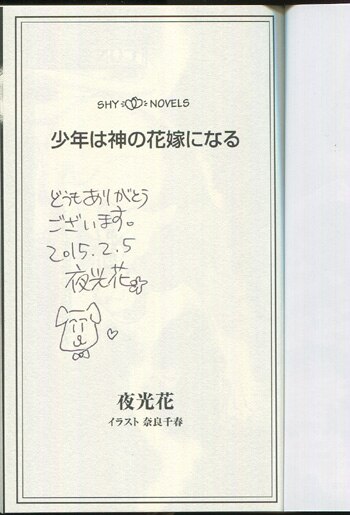 SHY NOVELS
少年は神の花嫁になる
どうもありがとう
ございます。
2015.2.5
夜光花
夜光花
イラスト 奈良千春